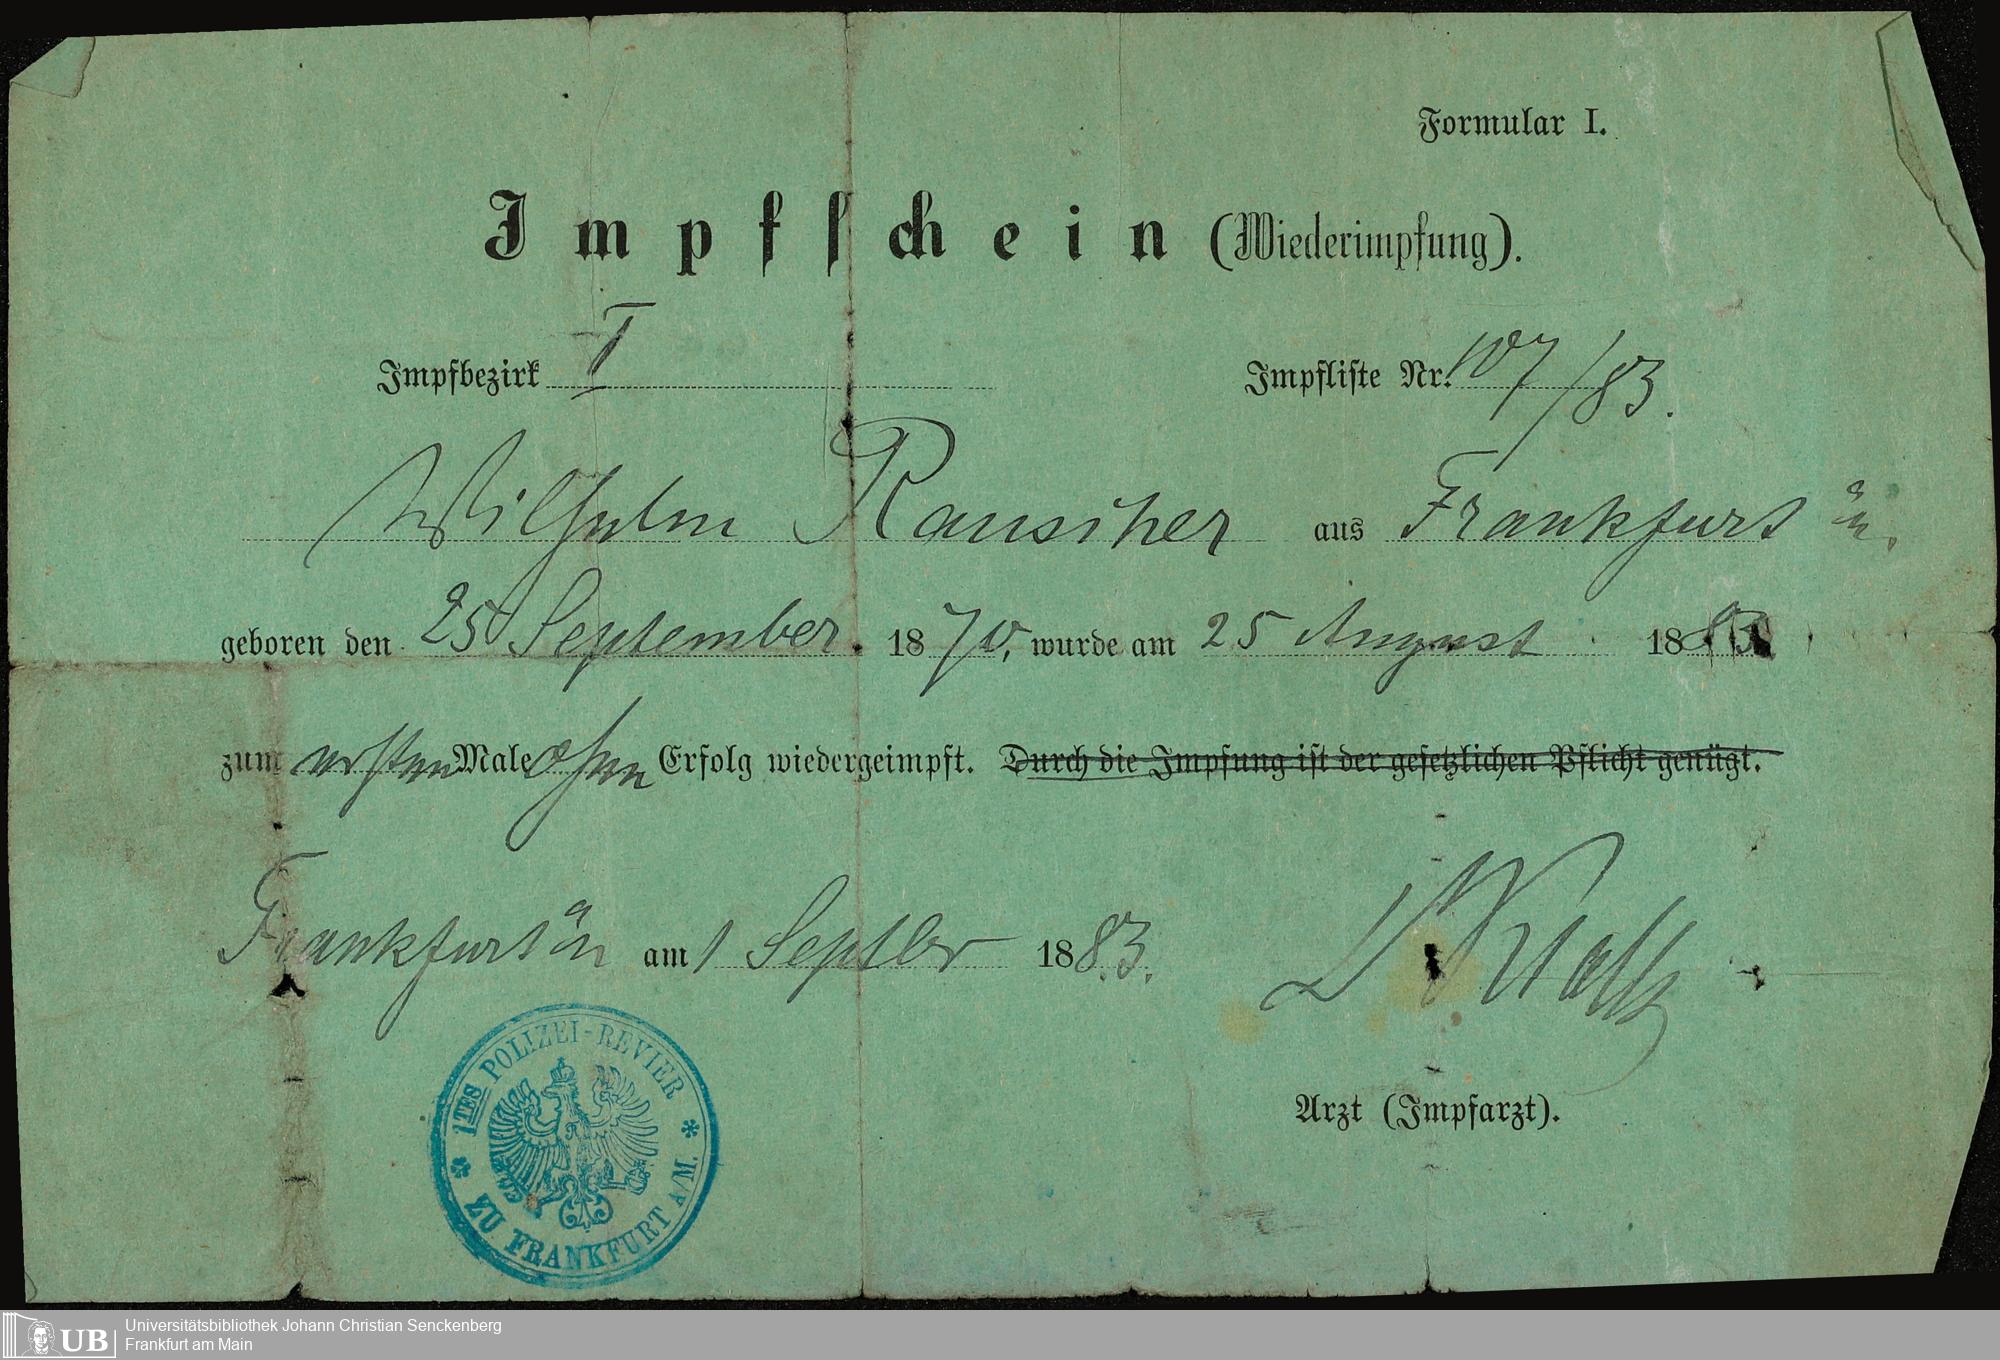 Formular I.
Impfschein (Wiederimpfung).
Impfbezirk I Impfliste Nr. 107/83.
Wilhelm Rauscher aus Frankfurt a/M.
geboren den 25 September 1870, wurde am 25 August 1883
zum ersten Male ohne Erfolg wiedergeimpft. Durch die Impfung ist der gesetzlichen Pflicht genügt.
Frankfurt a/M am 1 Septber 1883.
Dr
Arzt (Impfarzt).
1TES POLIZEI-REVIER
ZU FRANKFURT A/M.
UB Universitätsbibliothek Johann Christian Senckenberg
Frankfurt am Main